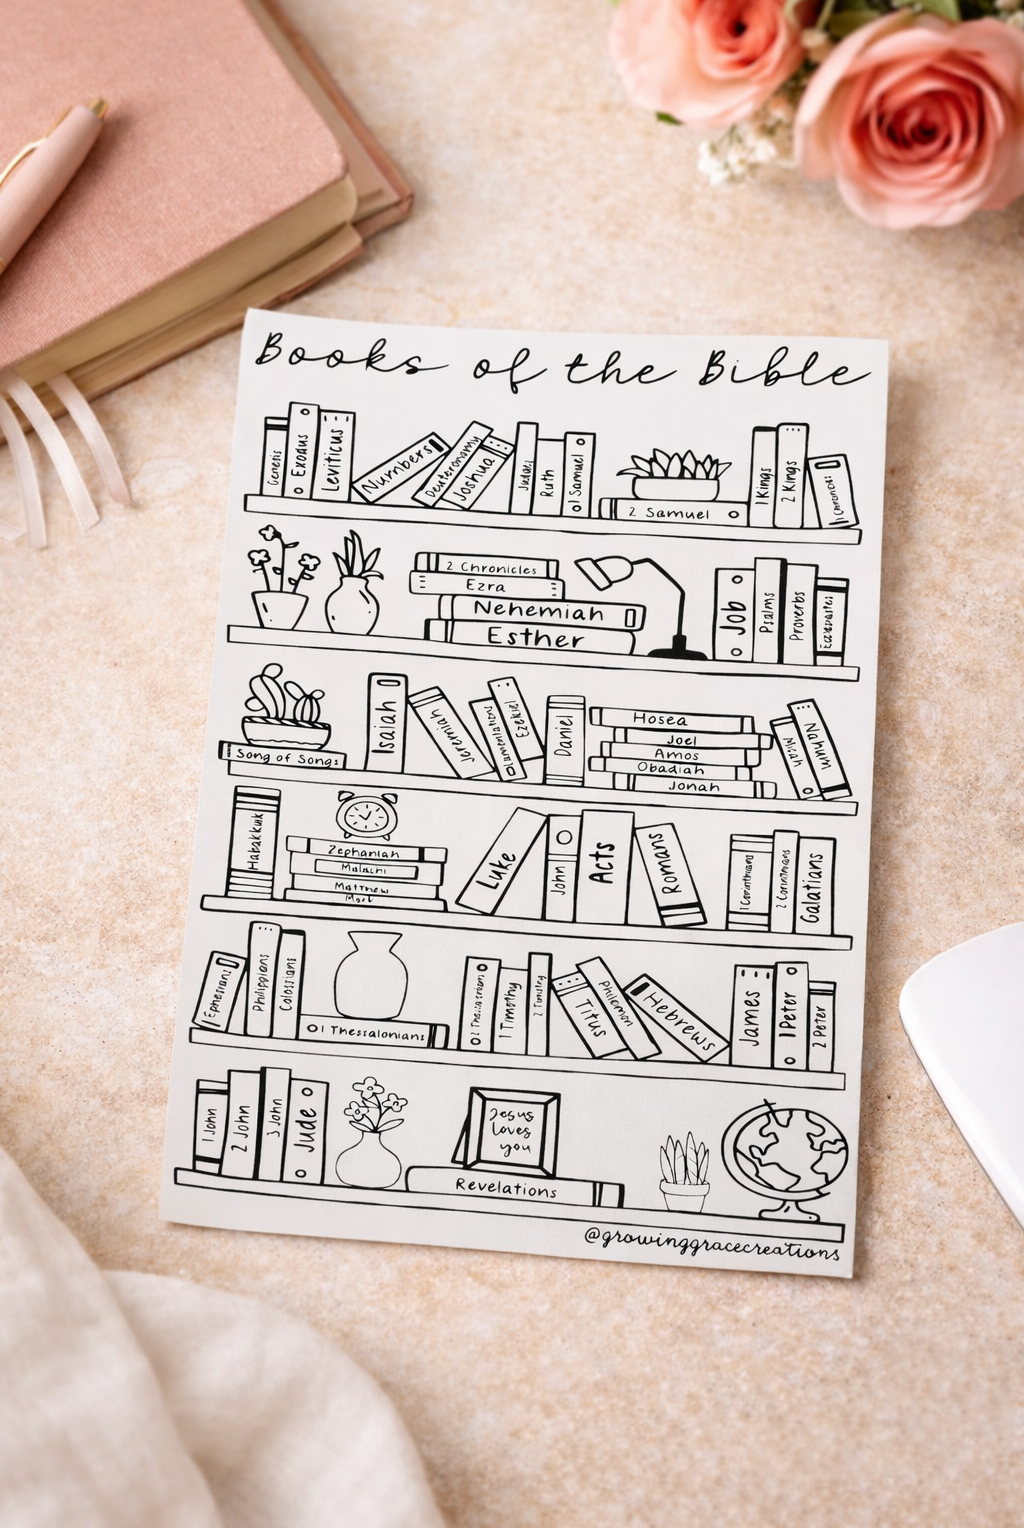 Books of the Bible
Genesis
Exodus
Leviticus
Numbers
Deuteronomy
Joshua
Judges
Ruth
1 Samuel
2 Samuel
1 Kings
2 Kings
1 Chronicles
2 Chronicles
Ezra
Nehemiah
Esther
Job
Psalms
Proverbs
Ecclesiastes
Song of Songs
Isaiah
Jeremiah
Lamentations
Ezekiel
Daniel
Hosea
Joel
Amos
Obadiah
Jonah
Micah
Nahum
Habakkuk
Zephaniah
Malachi
Matthew
Mark
Luke
John
Acts
Romans
1 Corinthians
2 Corinthians
Galatians
1 Ephesians
Philippians
Colossians
1 Thessalonians
2 Thessalonians
1 Timothy
2 Timothy
Titus
Philemon
Hebrews
James
1 Peter
2 Peter
1 John
2 John
3 John
Jude
Jesus
loves
you
Revelations
@growinggracecreations